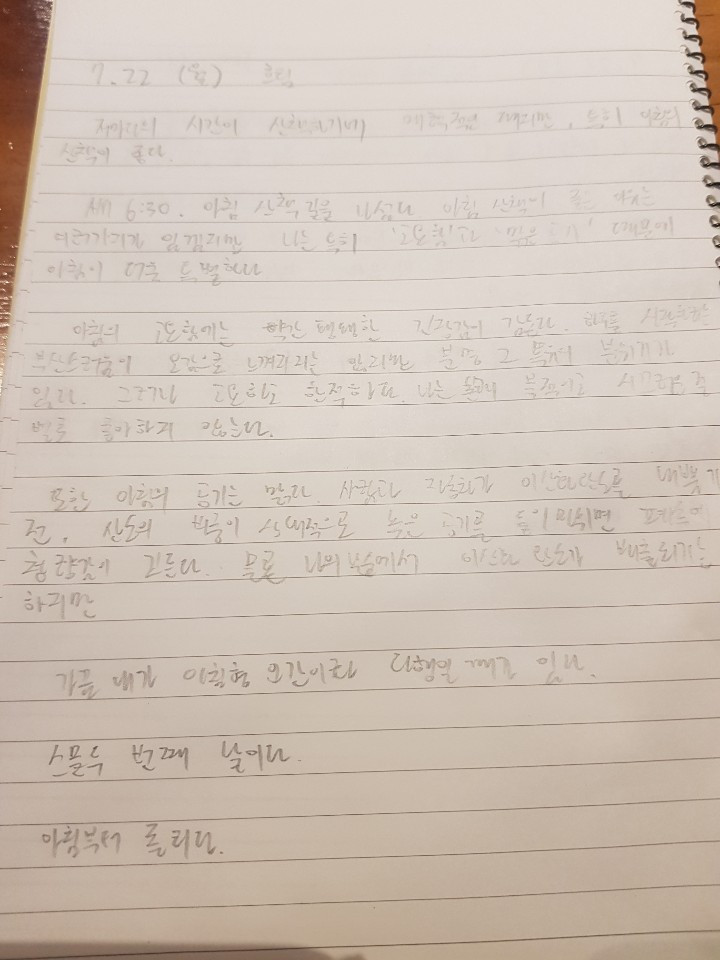 7.22 (월) 흐림
저마다의 시간이 산책하기에 매력적이 지만, 특히 아침의
산책이 좋다.
AM 6:30. 아침 산책길을 나섰다. 아침 산책이 좋은 이유는
여러가지가 있겠지만 나는 특히 '고요함'과 '맑은 공기' 때문에
아침이 더욱 특별하다
아침의 고요함에는 약간 팽팽한 긴장감이 감돈다. 하루를 시작하는
부산스러움이 오감으로 느껴지지는 않지만 분명 그 특유의 분위기가
있다. 그러나 고요하고 한적하다. 나는 본래 북적이고 시끄러운 것
별로 좋아하지 않는다.
또한 아침의 공기는 맑다. 사람과 자동차가 이산화탄소를 내뿜기
전, 산소의 비중이 상대적으로 높은 공기를 들이마쉬면 폐속에
청량감이 고른다. 물론 나의 숨에서 이산화탄소가 배출되기는
하지만
가끔 내가 아침형 인간이라 다행일 때가 있다.
스물두 번째 날이다.
아침부터 흐리다.